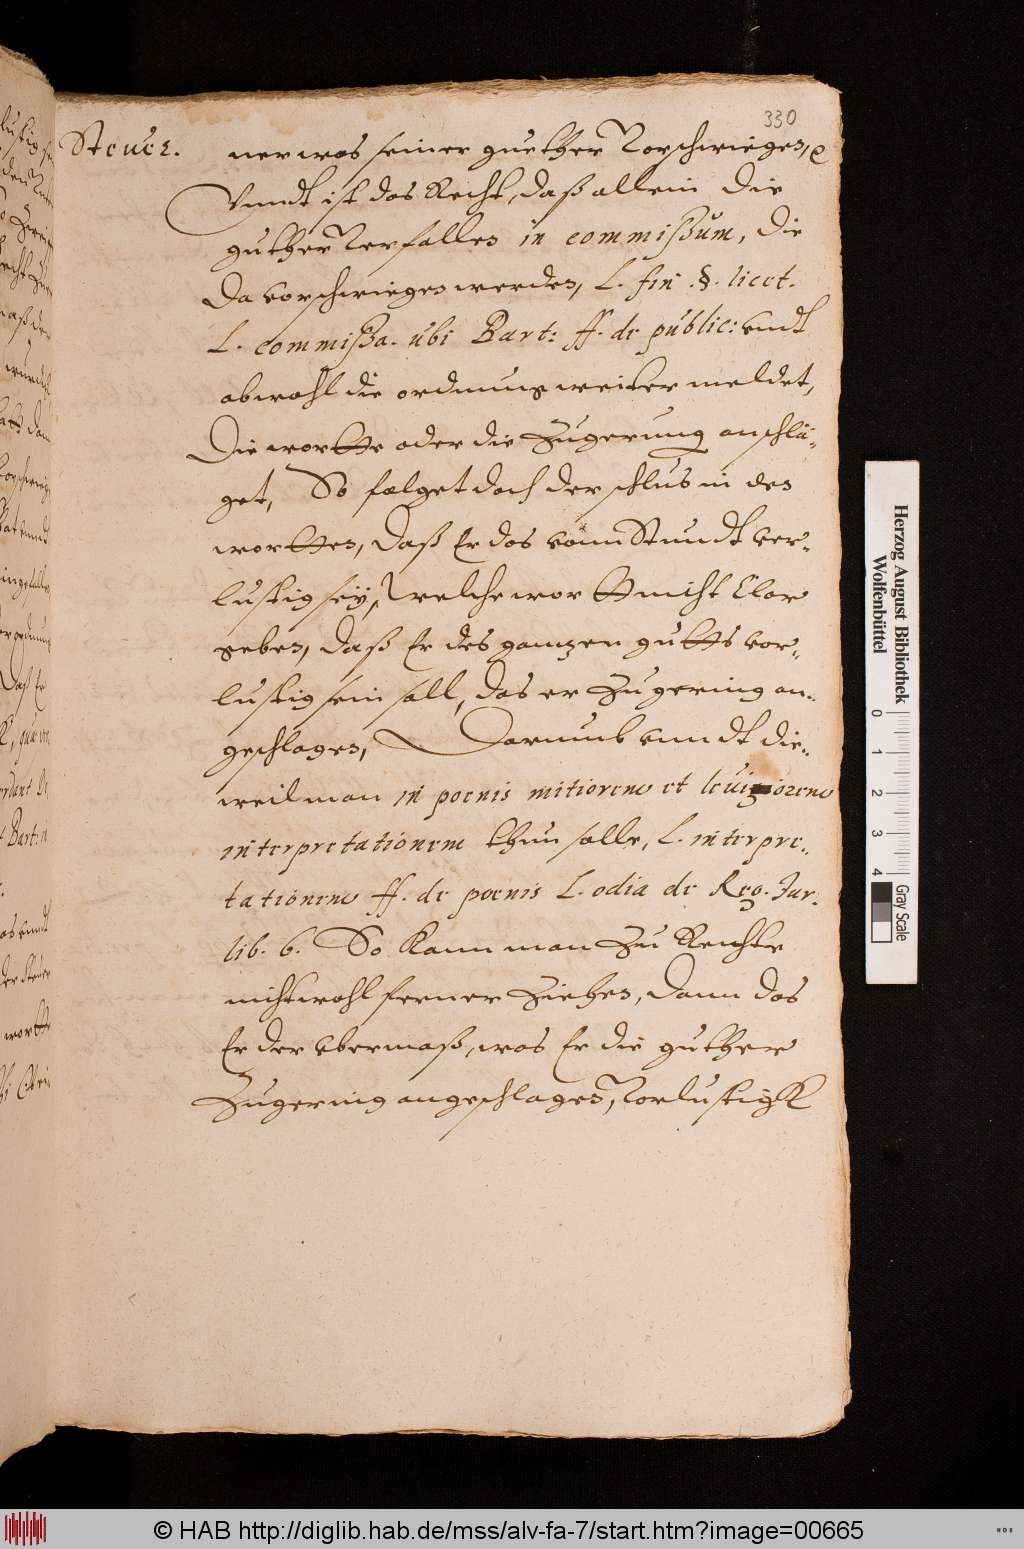 330
Steuer. ner was seiner guether Vorschwiegen,
Vnndt ist das Recht, daß allein die
guther Verfallen in commißum, die
da vorschwiegen werden, L. fin. §. licet.
L. commißa. ubi Bart: ff. de public: vndt
obwohl die ordnung weiter meldet,
Die wortte oder die Zugerung anschlä-
get, So folget doch der schlus in den
wortten, daß Er das vonn Stundt ver-
lustig seÿ, welche wortt nicht klar
geben, daß Er des ganzen gutts vor-
lustig sein soll, das er Zu gering an-
geschlagen, Darumb vnndt die-
weil man in poenis mitiorem et leuiorem
interpretationem thun solle, L. interpre-
tationem ff. de poenis L. odia de Reg. Jur.
lib. 6. So kann man Zu Rechte
nicht wohl ferner Ziehen, dann das
Er der vbermaß, was Er die guther
Zu gering angeschlagen, Vorlustigk
Herzog August Bibliothek
Wolfenbüttel
0 1 2 3 4
Gray Scale
© HAB http://diglib.hab.de/mss/alv-fa-7/start.htm?image=00665